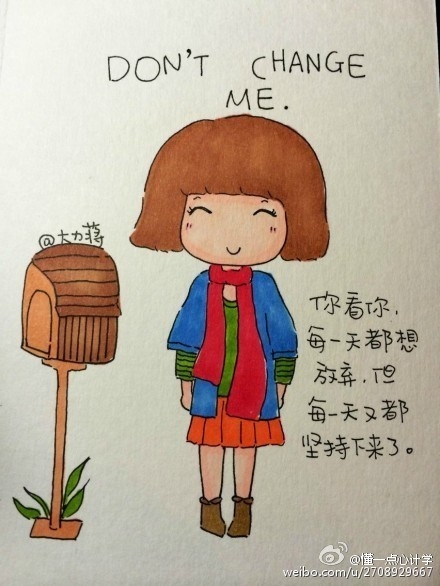 DON'T CHANGE
ME.
@大力蒋
你看你,
每一天都想
放弃,但
每一天又都
坚持下来了。
@懂一点心计学
weibo.com/u/2708929667